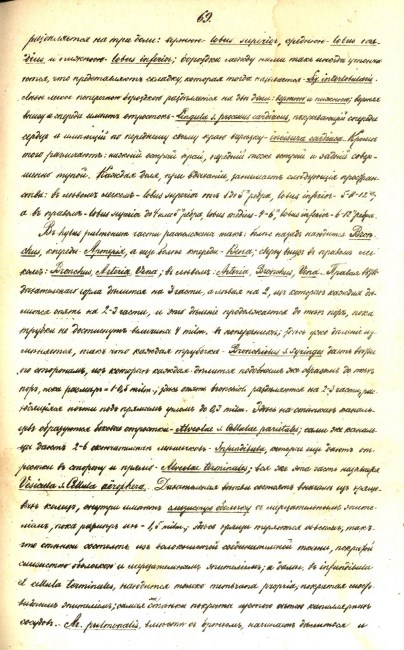 69.
раздѣляется на три доли: верхнюю lobus superior, среднюю lobus medius
и нижнюю lobus inferior; бороздки между ними такъ иногда
что представляютъ складку, которая тогда называется Lig. interlobularis.
Лѣвое легкое поперечною бороздкою раздѣляется на двѣ доли: верхнюю и нижнюю; верхняя
внизу и спереди имѣетъ отростокъ Lingula s. processus cardiacus, покрывающій спереди
сердце и имѣющій по переднему своему краю вырѣзку incisura cardiaca. Кромѣ
того различаютъ: нижній острый край, передній тоже острый и задній совер-
шенно тупой. Каждая доля, при дыханіи, занимаетъ слѣдующія простран-
ства: въ лѣвомъ легкомъ lobus superior отъ 1 до 5го ребра, lobus inferior 5-8-12го,
а въ правомъ lobus superior до 4го ребра, lobus medius 4-6го, lobus inferior 6-12го ребра.
Въ hylus pulmonum части расположены такъ: болѣе назадъ находится Bron-
chus, кпереди Arteria, а еще болѣе кпереди Vena; сверху внизъ въ правомъ лег-
комъ: Bronchus, Arteria, Vena; въ лѣвомъ: Arteria, Bronchus, Vena. Правая вѣтвь
дыхательнаго горла дѣлится на 3 части, а лѣвая на 2, изъ которыхъ каждая дѣ-
лится опять на 2-3 части, и это дѣленіе продолжается до тѣхъ поръ, пока
трубки не достигнутъ величины 4 mlm. въ поперечникѣ; здѣсь уже дѣленіе из-
мѣняется, такъ что каждая трубочка Bronchiolus s. syringes даетъ вѣтви
по сторонамъ, изъ которыхъ каждая дѣлится подобнымъ же образомъ до тѣхъ
поръ, пока размѣръ = 1-0,5 mlm.; здѣсь опять bronchioli раздѣляются на 2-3 части, рас-
ходящіяся почти подъ прямымъ угломъ до 0,3 mlm. Здѣсь на стѣнкахъ каналь-
цевъ образуются боковые отростки Alveolae s. cellulae parietales; сами же каналь-
цы даютъ 2-6 мѣшечковъ Infundibula, которые еще даютъ от-
ростки въ сторону и прямо Alveolae terminales; вся же эта часть называется
Vesicula s. Cellula aërophora. Дыхательныя вѣтви состоятъ вначалѣ изъ хряще-
выхъ колецъ, внутри имѣютъ слизистую оболочку съ мерцательнымъ эпите-
ліемъ, пока размѣръ ихъ 1,5 mlm.; здѣсь хрящи теряются совсѣмъ; такъ
что стѣнки состоятъ изъ волокнистой соединительной ткани, покрытой
слизистою оболочкою и мерцательнымъ эпителіемъ; а далѣе, въ infundibula
et cellula terminales, находится только membrana propria, покрытая
эпителіемъ; самая стѣнка покрыта густою сѣтью капиллярныхъ
сосудовъ. Ar. pulmonalis, вмѣстѣ съ бронхомъ, начинаетъ дѣлиться и